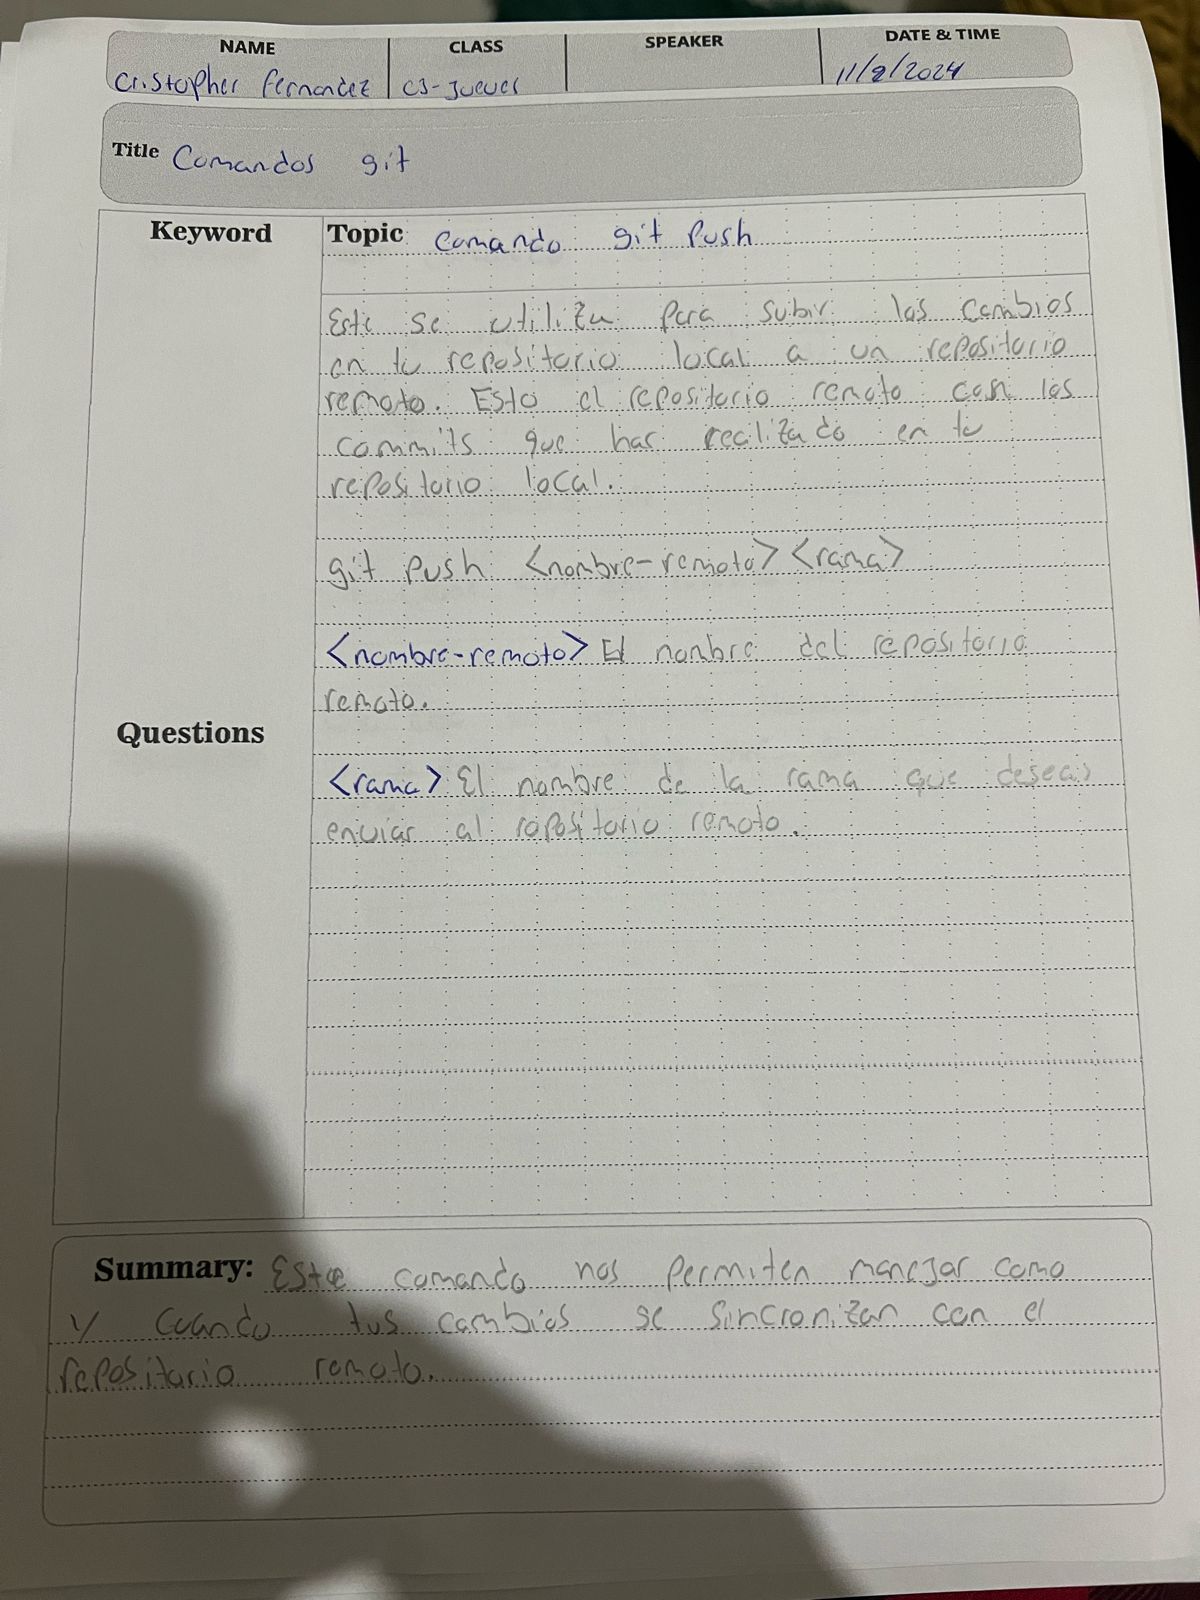 NAME CLASS SPEAKER DATE & TIME
Cristopher Fernandez C3-Jueves 11/2/2024
Title Comandos git
Keyword
Topic Comando git Push
Este se utiliza para subir las cambios
en tu repositorio local a un repositorio
remoto. Esto el repositorio remoto con los
commits que has realizado en tu
repositorio local.
git Push <nombre-remoto> <rama>
<nombre-remoto> El nombre del repositorio
remoto.
Questions
<rama> El nombre de la rama que deseas
enviar al repositorio remoto.
Summary: Este comando nos permiten manejar como
y Cuando tus cambios se sincronizan con el
repositorio remoto.